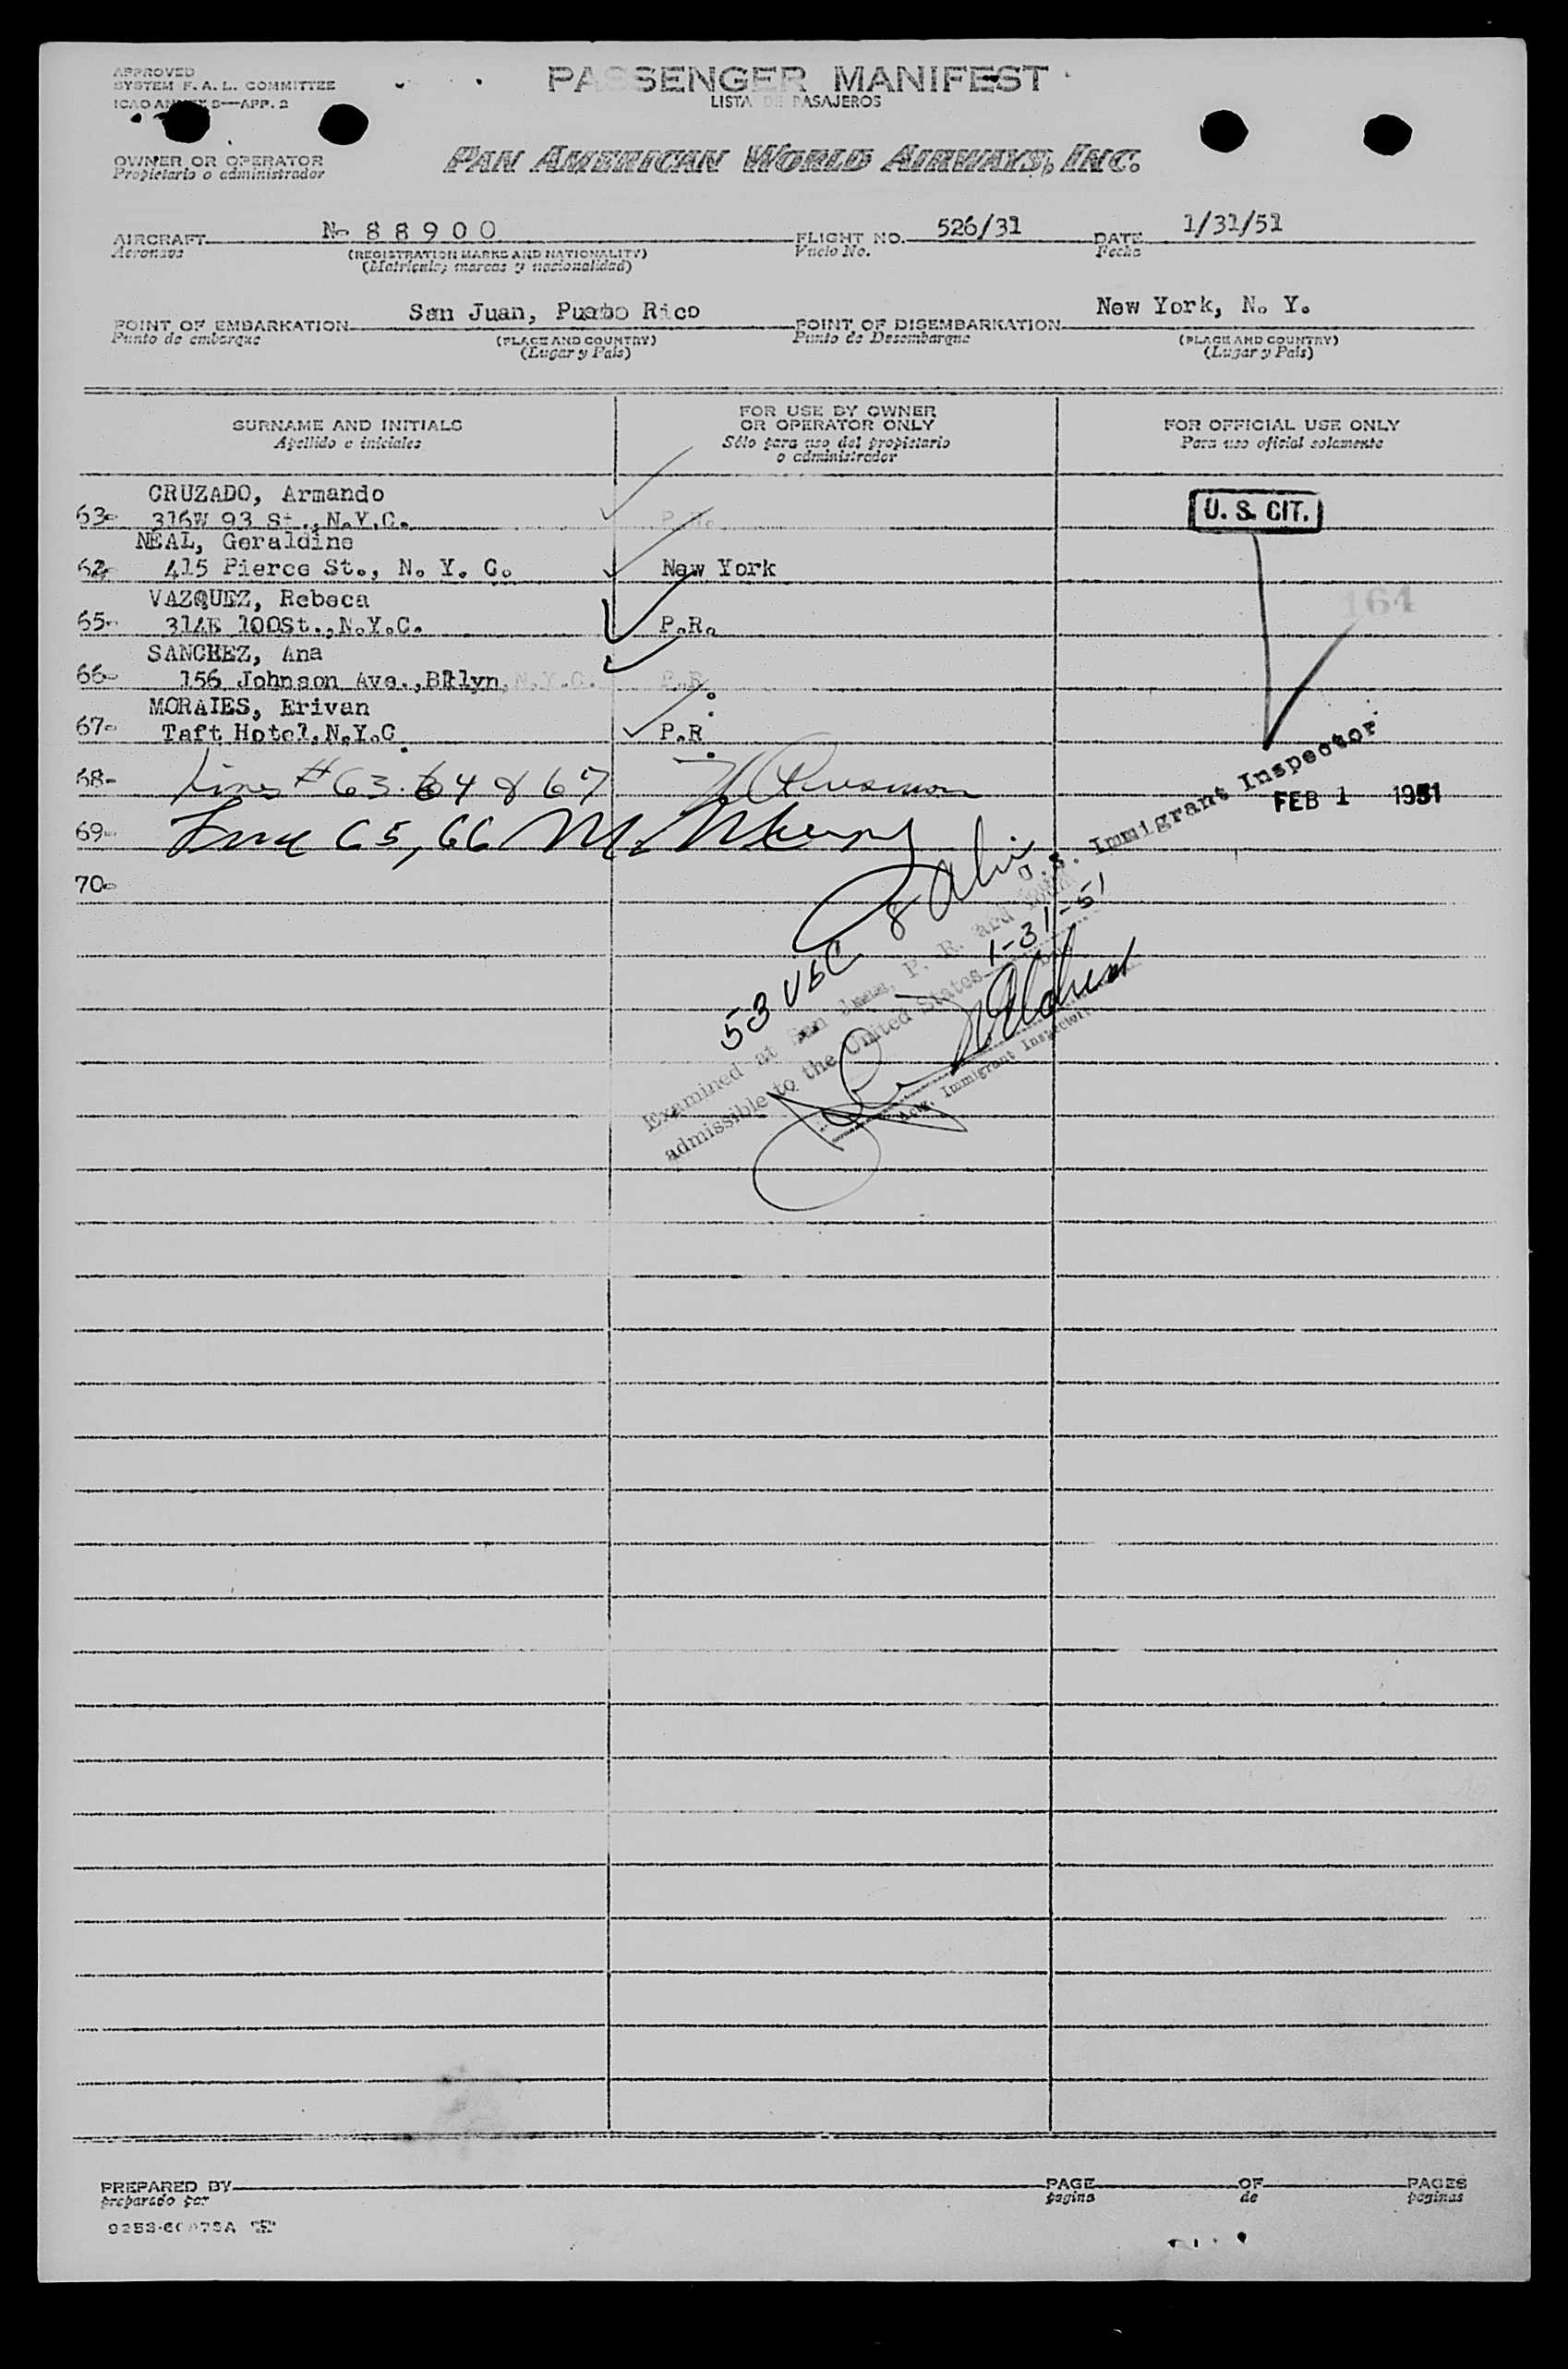 APPROVED
SYSTEM F. A. L. COMMITTEE
ICAO ANNEX 9—APP. 2
PASSENGER MANIFEST
LISTA DE PASAJEROS
OWNER OR OPERATOR
Propietario o administrador
PAN AMERICAN WORLD AIRWAYS, INC.
AIRCRAFT N- 88900 FLIGHT NO. 526/31 DATE 1/31/51
Aeronave (REGISTRATION MARKS AND NATIONALITY) Vuelo No. Fecha
(Matricula; marcas y nacionalidad)
POINT OF EMBARKATION San Juan, Puerto Rico POINT OF DISEMBARKATION New York, N. Y.
Punto de embarque (PLACE AND COUNTRY) Punto de Desembarque (PLACE AND COUNTRY)
(Lugar y Pais) (Lugar y Pais)
SURNAME AND INITIALS FOR USE BY OWNER OR OPERATOR ONLY FOR OFFICIAL USE ONLY
Apellido e iniciales Sólo para uso del propietario o administrador Para uso oficial solamente
CRUZADO, Armando
63- 316W 93 St., N.Y.C. P.R. U. S. CIT.
NEAL, Geraldine
64 415 Pierce St., N. Y. C. New York
VAZQUEZ, Rebeca 164
65- 314E 100St., N.Y.C. P.R.
SANCHEZ, Ana
66- 156 Johnson Ave., Bklyn, N.Y.C. P.R.
MORAIES, Erivan
67- Taft Hotel, N.Y.C. P.R.
68- Lines # 63-64 & 67
U.S. Immigrant Inspector
FEB 1 1951
69- Line 65, 66
70-
53 USC 8
Examined at San Juan, P. R. and found
admissible to the United States 1-31-51
Actg. Immigrant Inspector
PREPARED BY PAGE OF PAGES
preparado por pagina de paginas